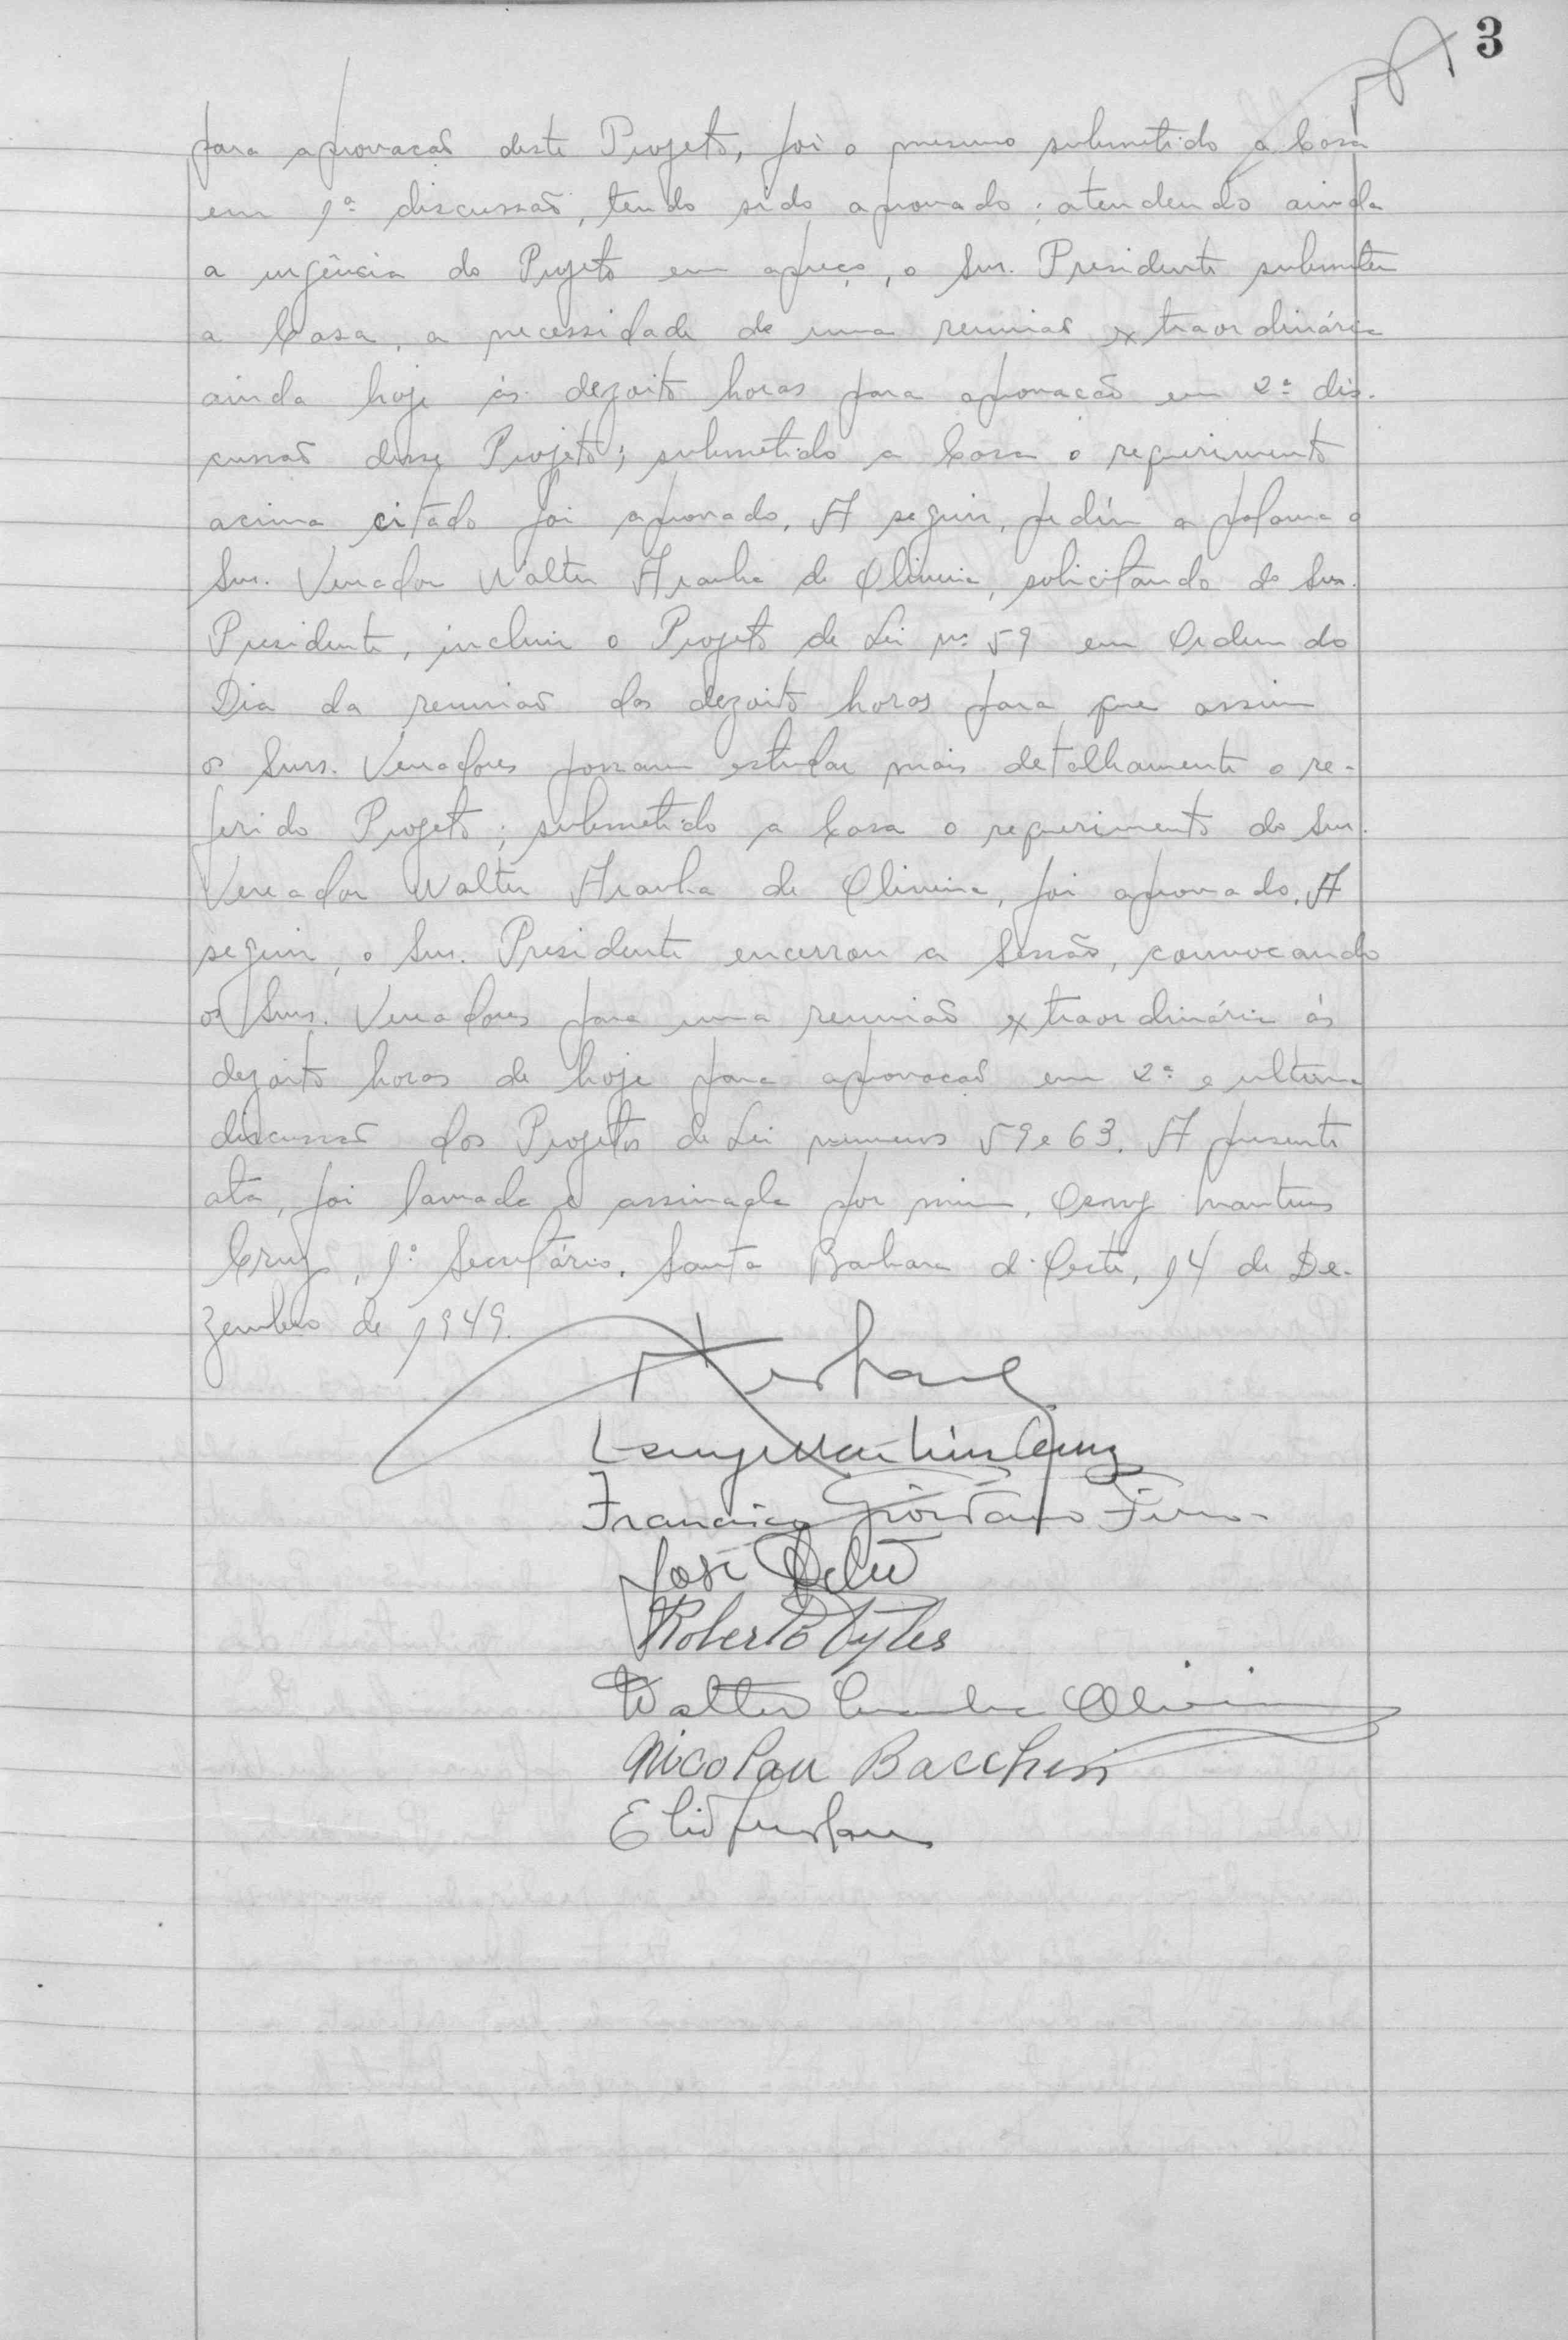 3
para aprovacaõ deste Projeto, foi o mesmo submetido a Casa
em 1ª discussaõ, tendo sido aprovado; atendendo ainda
a urgência do Projeto em apreço, o Snr. Presidente submeteu
a Casa, a necessidade de uma reuniaõ extraordinária
ainda hoje ás dezoito horas para aprovacaõ em 2ª dis-
cussaõ desse Projeto; submetido a Casa o requerimento
acima citado foi aprovado. A seguir, pediu a palavra o
Snr. Vereador Walter Aranha de Oliveira, solicitando do Snr.
Presidente, incluir o Projeto de Lei nº 59 em Ordem do
Dia da reuniaõ das dezoito horas para que assim
os Snrs. Vereadores possam estudar mais detalhamente o re-
ferido Projeto; submetido a Casa o requerimento do Snr.
Vereador Walter Aranha de Oliveira, foi aprovado. A
seguir, o Snr. Presidente encerrou a Sessaõ, convocando
os Snrs. Vereadores para uma reuniaõ extraordinária ás
dezoito horas de hoje para aprovacaõ em 2ª e ultima
discussaõ dos Projetos de Lei numeros 59 e 63. A presente
ata, foi lavrada e assinada por mim, Martins
Cruz, 1º Secretário. Santa Barbara d'Oeste, 14 de De-
zembro de 1949.
Martins Cruz
Francisco Giordano
José
Roberto
Walter Aranha Oliveira
Nicolau Bacchin
Elio